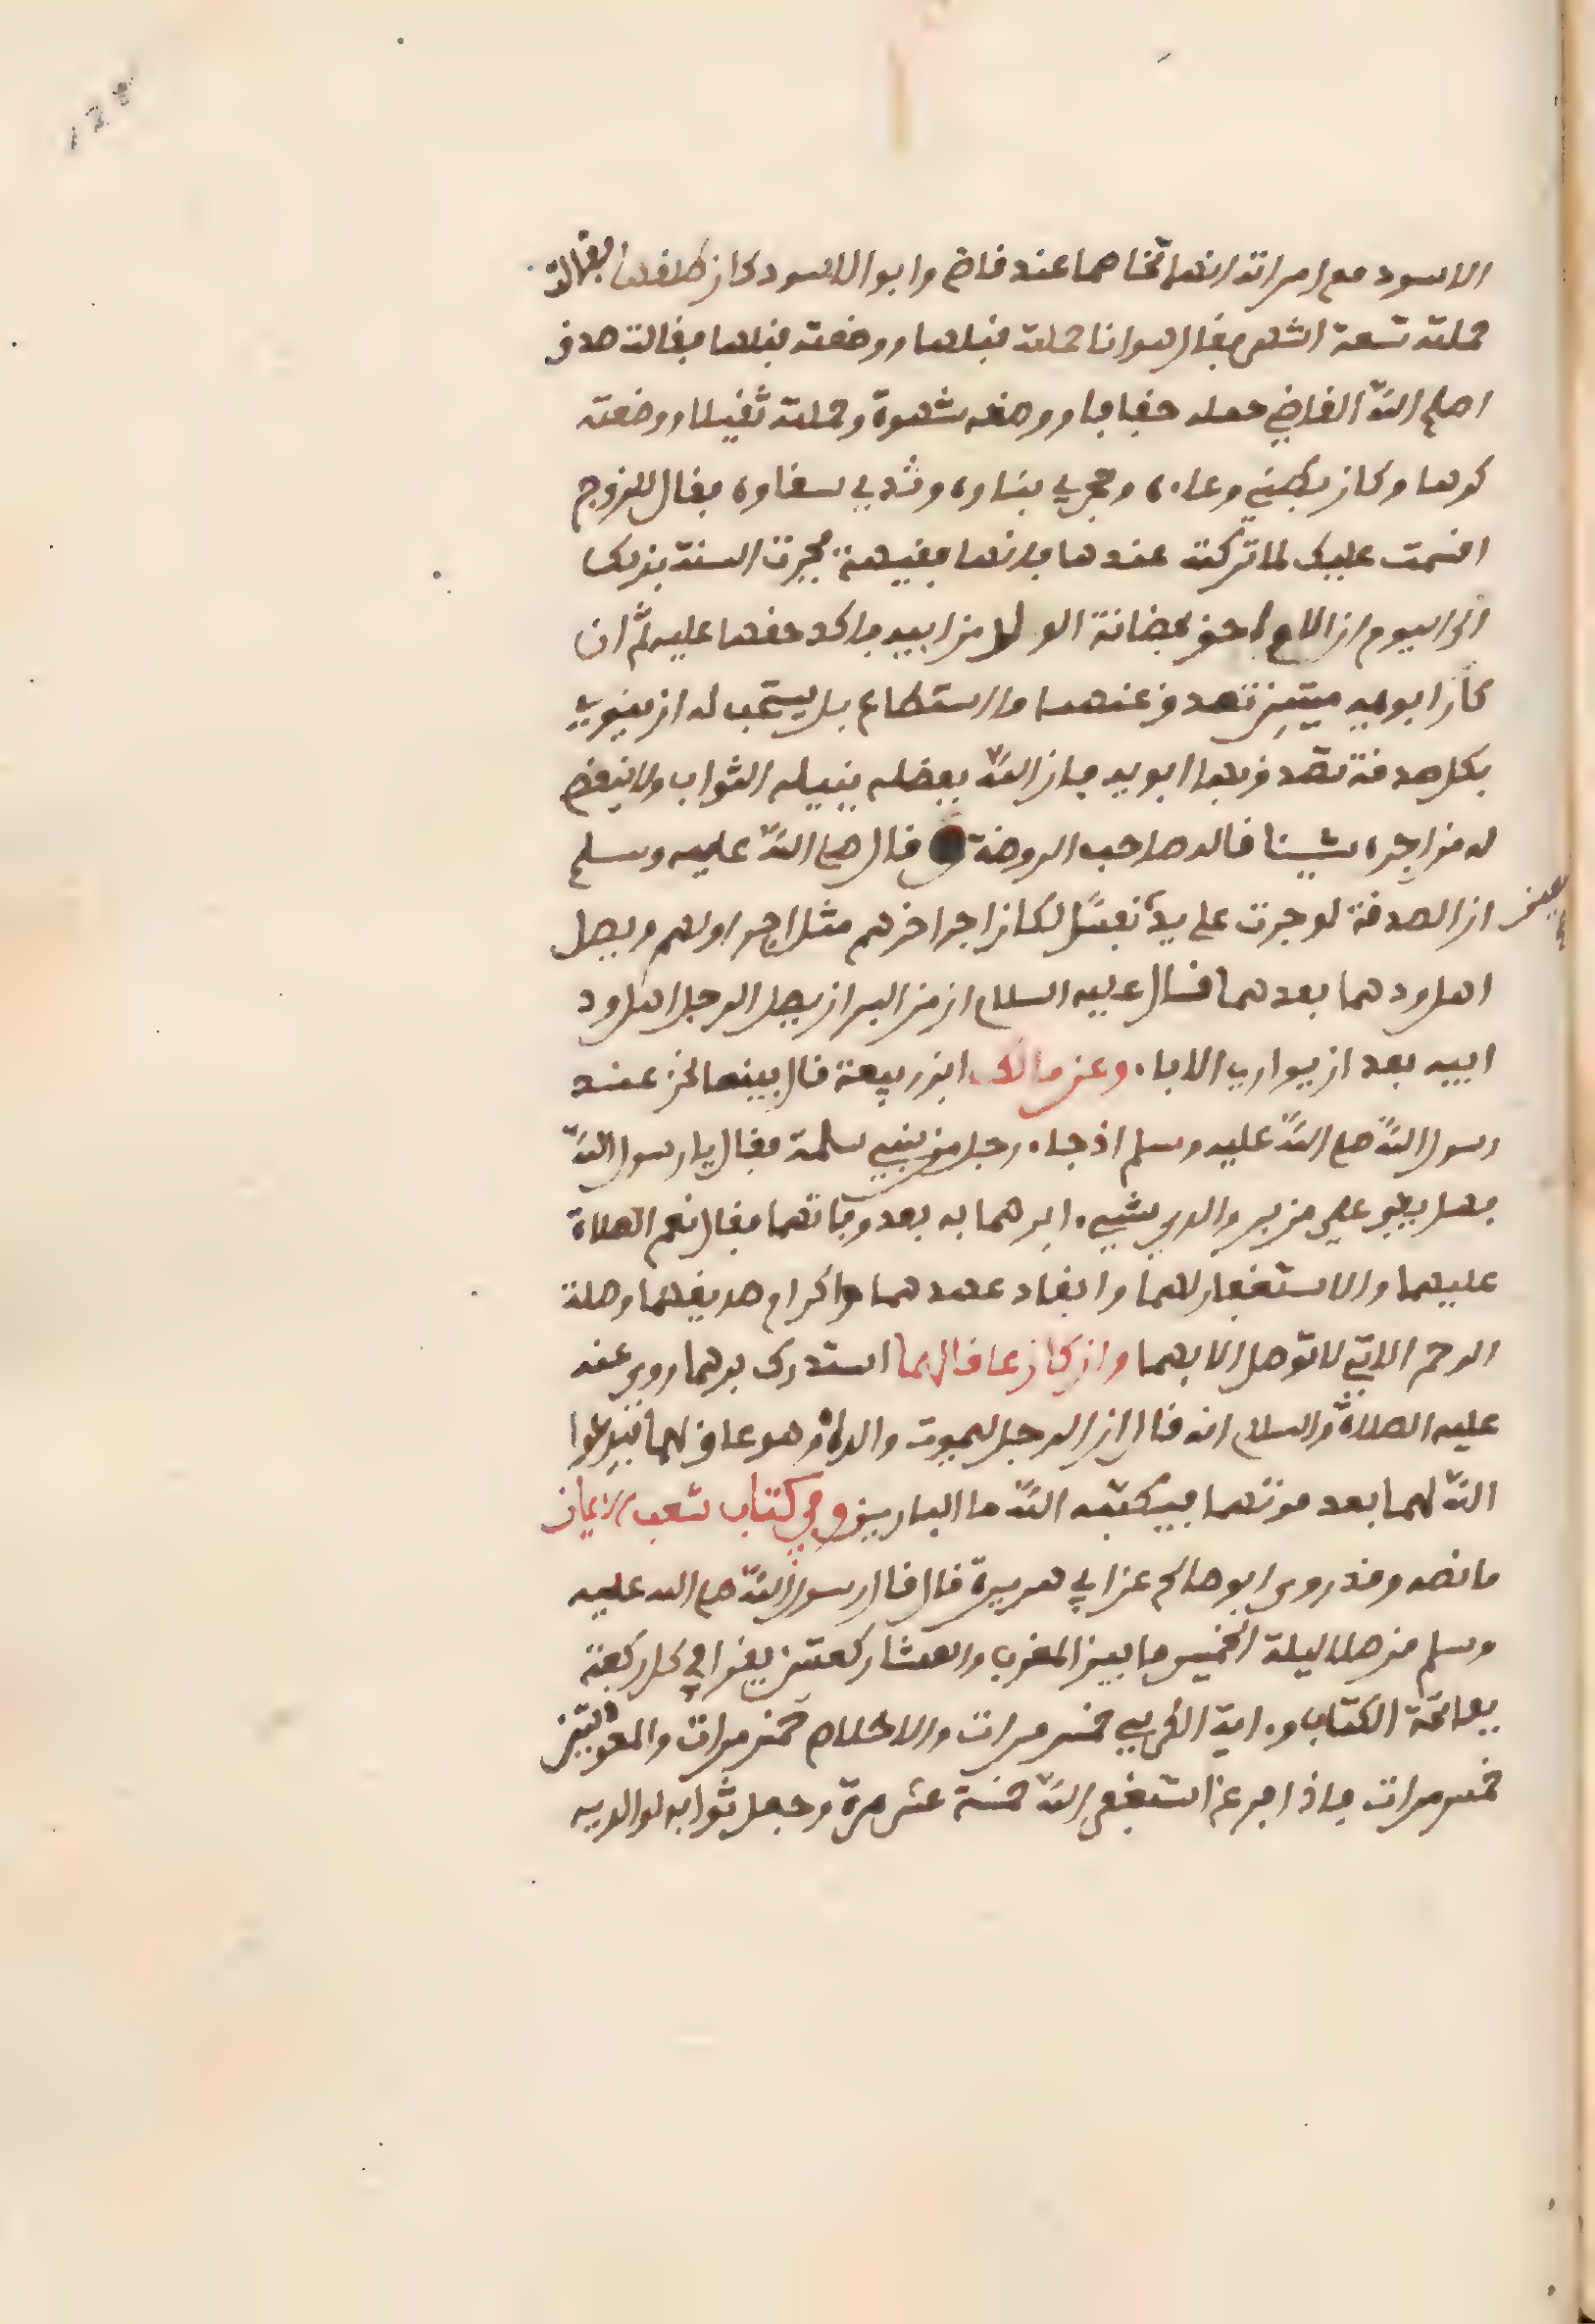 الاسود مع امراته انهما تخاصما عند قاض وابو الاسود كان طلقها فقالت
حملته تسعة اشهر فقال هو انا حملته قبلها ووضعته قبلها فقالت صدق
اصلح الله القاضي حمله خفافا ووضعه شهوة وحملته ثقيلا ووضعته
كرها وكان بطني وعاءه وحجري فناوه وثديي سقاوه فقال للزوج
اقسمت عليك لما تركته عندها فانها فقيهة فجرت السنة بذلك
الى اليوم ان الام احق بحضانة الولد من ابيه فاكد حقها عليه ثم ان
كان ابويه ميتين تصدق عنهما ما استطاع بل يستحب له ان ينوي
بكل صدقة تصدق بها ابويه فان الله بفضله ينيله الثواب ولا ينقص
له من اجره شيئا قاله صاحب الروضة قال صلى الله عليه وسلم
ان الصدقة لو جرت على يد نفسا لكان اجر اخرهم مثل اجر اولهم ويصل
اهل ودهما بعدهما قال عليه السلام ان من البر ان يصل الرجل اهل ود
ابيه بعد ان يواري الاباء وعن مالك ابن ربيعة قال بينما نحن عند
رسول الله صلى الله عليه وسلم اذ جاء رجل من بني سلمة فقال يا رسول الله
فهل بقي علي من بر والدي شيء ابرهما به بعد وفاتهما فقال نعم الصلاة
عليهما والاستغفار لهما وانفاد عهدهما واكرام صديقهما وصلة
الرحم التي لا توصل الا بهما وان كان عاقا لهما استدرك برهما روي عنه
عليه الصلاة والسلام انه قال ان الرجل ليموت والداه وهو عاق لهما فيدعوا
الله لهما بعد موتهما فيكتبه الله من البارين وفي كتاب شعب الايمان
ما نصه وقد روى ابو صالح عن ابي هريرة قال قال رسول الله صلى الله عليه
وسلم من صلى ليلة الخميس ما بين المغرب والعشا ركعتين يقرا في كل ركعة
بفاتحة الكتاب واية الكرسي خمس مرات والاخلاص خمس مرات والمعوذتين
خمس مرات فاذا فرغ استغفر الله خمسة عشر مرة وجعل ثوابه لوالديه